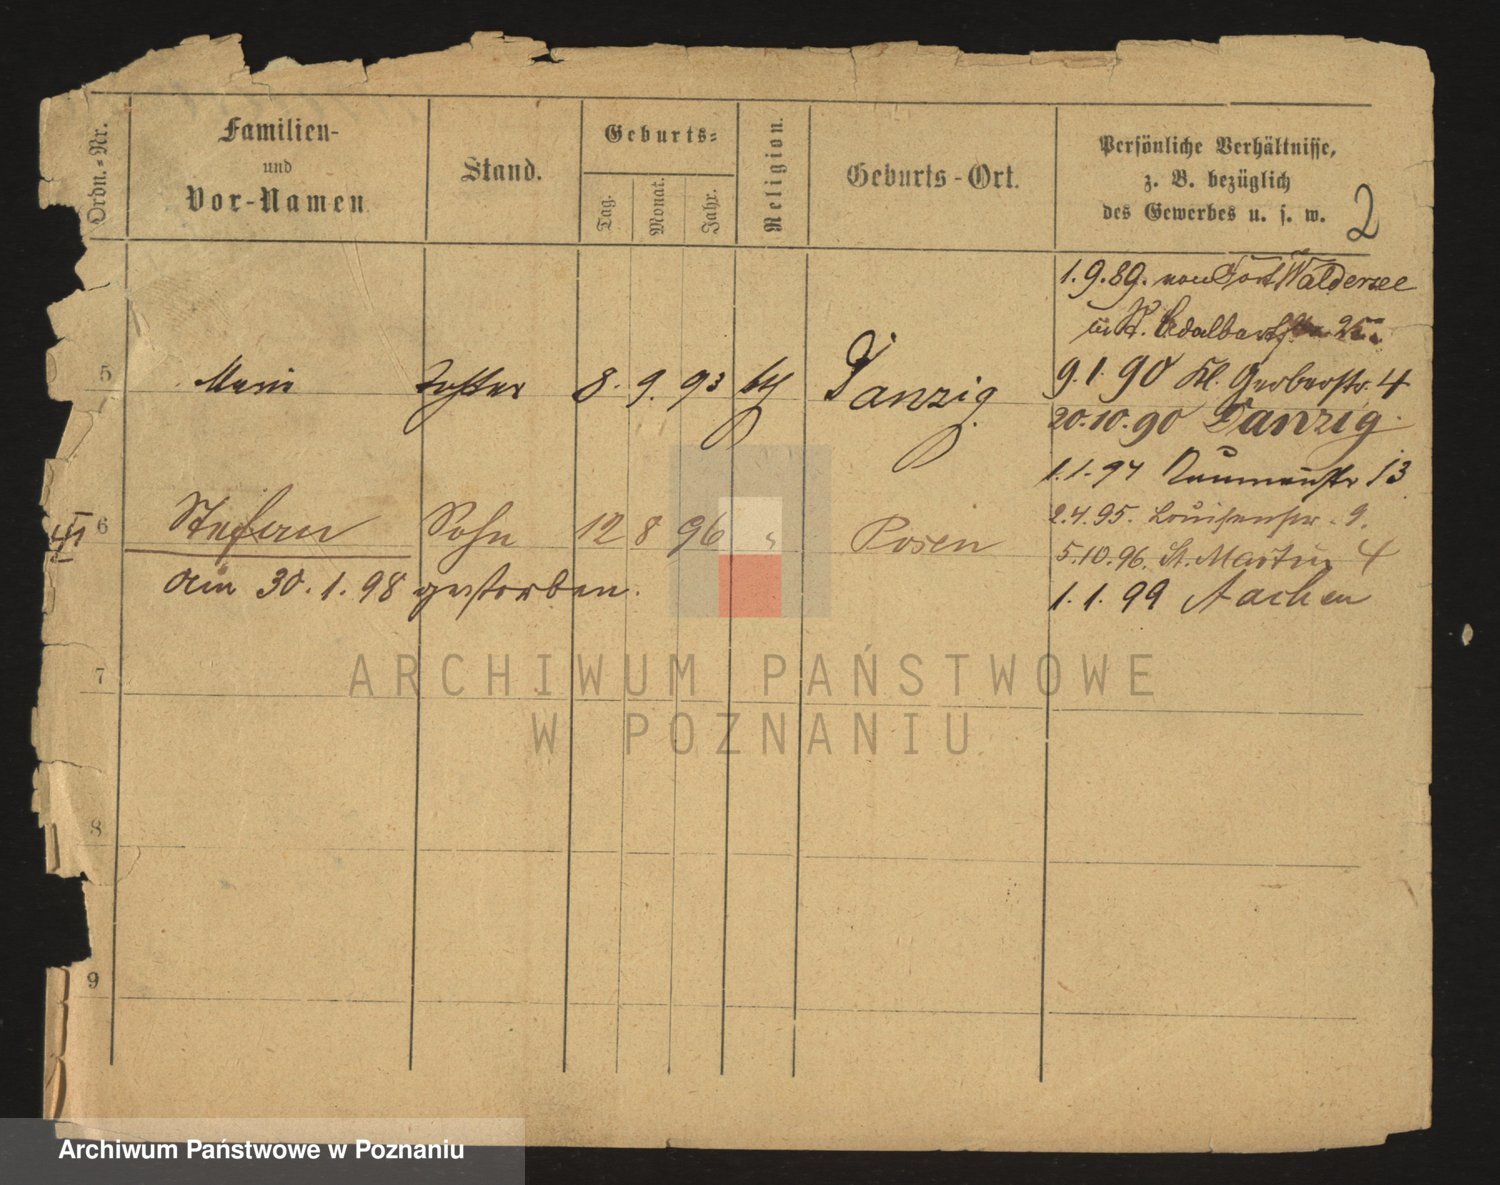 Ordn.-Nr.
Familien-
und
Vor-Namen
Stand.
Geburts-
Tag.
Monat.
Jahr.
Religion.
Geburts-Ort.
Persönliche Verhältnisse,
z. B. bezüglich
des Gewerbes u. s. w.
2
1.9.89. von Fort Waldersee
Adalbertstr. 25.
5 Marie Tochter 8. 9. 93 kth Danzig
9.1.90 Kl. Gerberstr. 4
20.10.90 Danzig
1.1.94 Naumannstr 13
6 Stefan Sohn 12 8 96 " Posen
2.4.95. Louisenstr. 9.
5.10.96. St. Martin 4
am 30.1.98 gestorben.
1.1.99 Aachen
7
ARCHIWUM PAŃSTWOWE
W POZNANIU
8
9
Archiwum Państwowe w Poznaniu